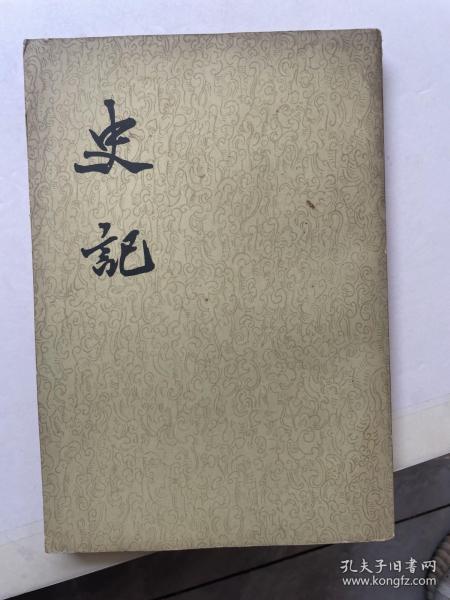 史記
孔夫子旧书网
www.kongfz.com